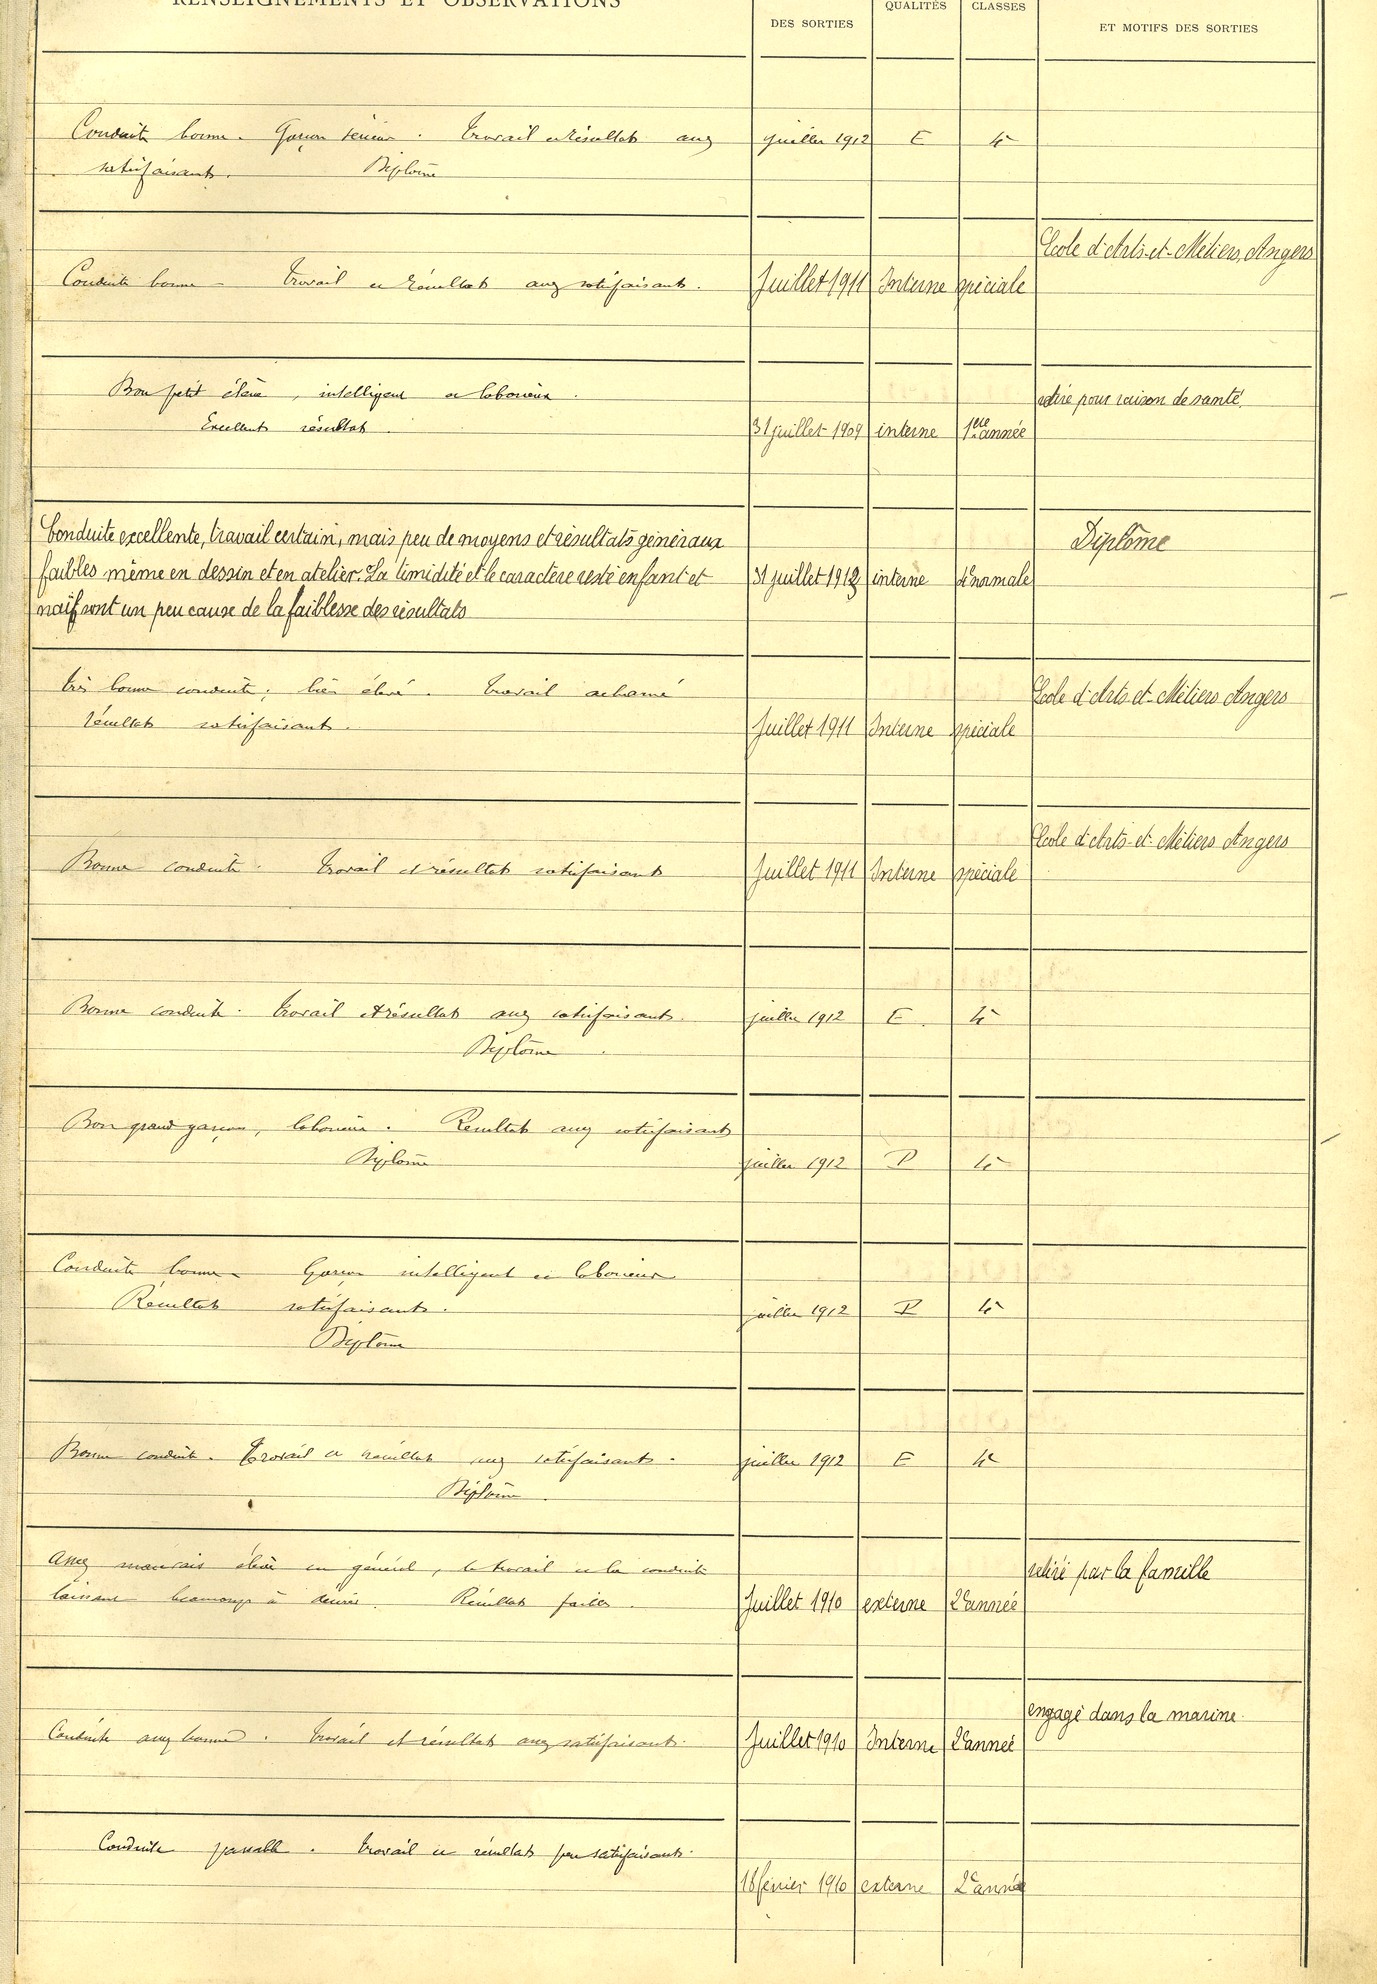 RENSEIGNEMENTS ET OBSERVATIONS
DES SORTIES
QUALITÉS
CLASSES
ET MOTIFS DES SORTIES
Conduite bonne. Garçon sérieux. Travail et résultats assez juillet 1912 E 4e
satisfaisants. Diplôme
Ecole d'Arts-et-Métiers, Angers
Conduite bonne - Travail et résultats assez satisfaisants. Juillet 1911 Interne spéciale
Bon petit élève, intelligent et laborieux. retiré pour raison de santé.
Excellents résultats. 31 juillet 1909 interne 1ère année
Conduite excellente, travail certain, mais peu de moyens et résultats généraux Diplôme
faibles même en dessin et en atelier. La timidité et le caractère resté enfant et 31 juillet 1912 interne 4e normale
naïf sont un peu cause de la faiblesse des résultats
Très bonne conduite; bien élevé. Travail acharné Ecole d'Arts-et-Métiers Angers
résultats satisfaisants. Juillet 1911 Interne spéciale
Ecole d'Arts-et-Métiers Angers
Bonne conduite. Travail et résultats satisfaisants Juillet 1911 Interne spéciale
Bonne conduite. Travail et résultats assez satisfaisants. juillet 1912 E. 4e
Diplôme.
Bon grand garçon, laborieux. Résultats assez satisfaisants
Diplôme juillet 1912 P 4e
Conduite bonne - Garçon intelligent et laborieux
Résultats satisfaisants. juillet 1912 P 4e
Diplôme
Bonne conduite. Travail et résultats assez satisfaisants. juillet 1912 E 4e
Diplôme.
Assez mauvais élève en général, le travail et la conduite retiré par la famille
laissant beaucoup à désirer. Résultats faibles. Juillet 1910 externe 2e année
engagé dans la marine.
Conduite assez bonne. Travail et résultats assez satisfaisants. Juillet 1910 Interne 2e année
Conduite passable. Travail et résultats peu satisfaisants.
18 février 1910 externe 2e année